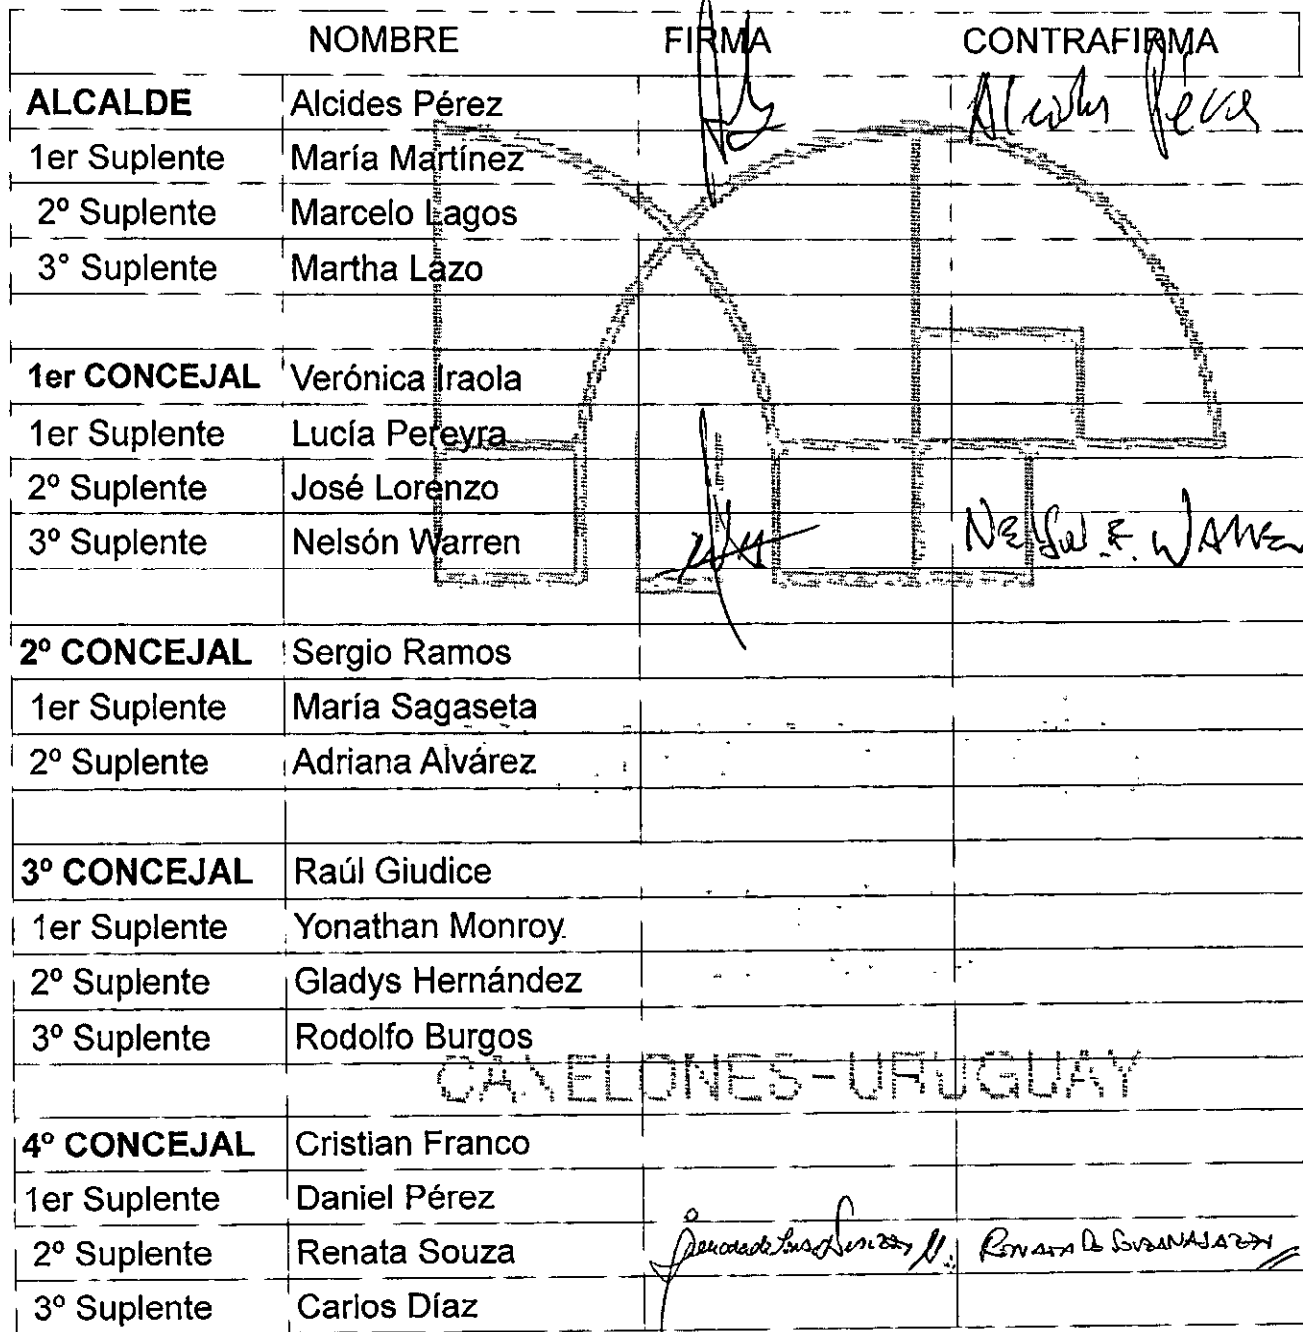 NOMBRE FIRMA CONTRAFIRMA
ALCALDE Alcides Pérez Alcides Pérez
1er Suplente María Martínez
2º Suplente Marcelo Lagos
3° Suplente Martha Lazo
1er CONCEJAL Verónica Iraola
1er Suplente Lucía Pereyra
2º Suplente José Lorenzo
3º Suplente Nelsón Warren Nelson F. Warren
2º CONCEJAL Sergio Ramos
1er Suplente María Sagaseta
2º Suplente Adriana Alvárez
3º CONCEJAL Raúl Giudice
1er Suplente Yonathan Monroy
2º Suplente Gladys Hernández
3º Suplente Rodolfo Burgos
CANELONES-URUGUAY
4º CONCEJAL Cristian Franco
1er Suplente Daniel Pérez
2º Suplente Renata Souza Renata De
3º Suplente Carlos Díaz